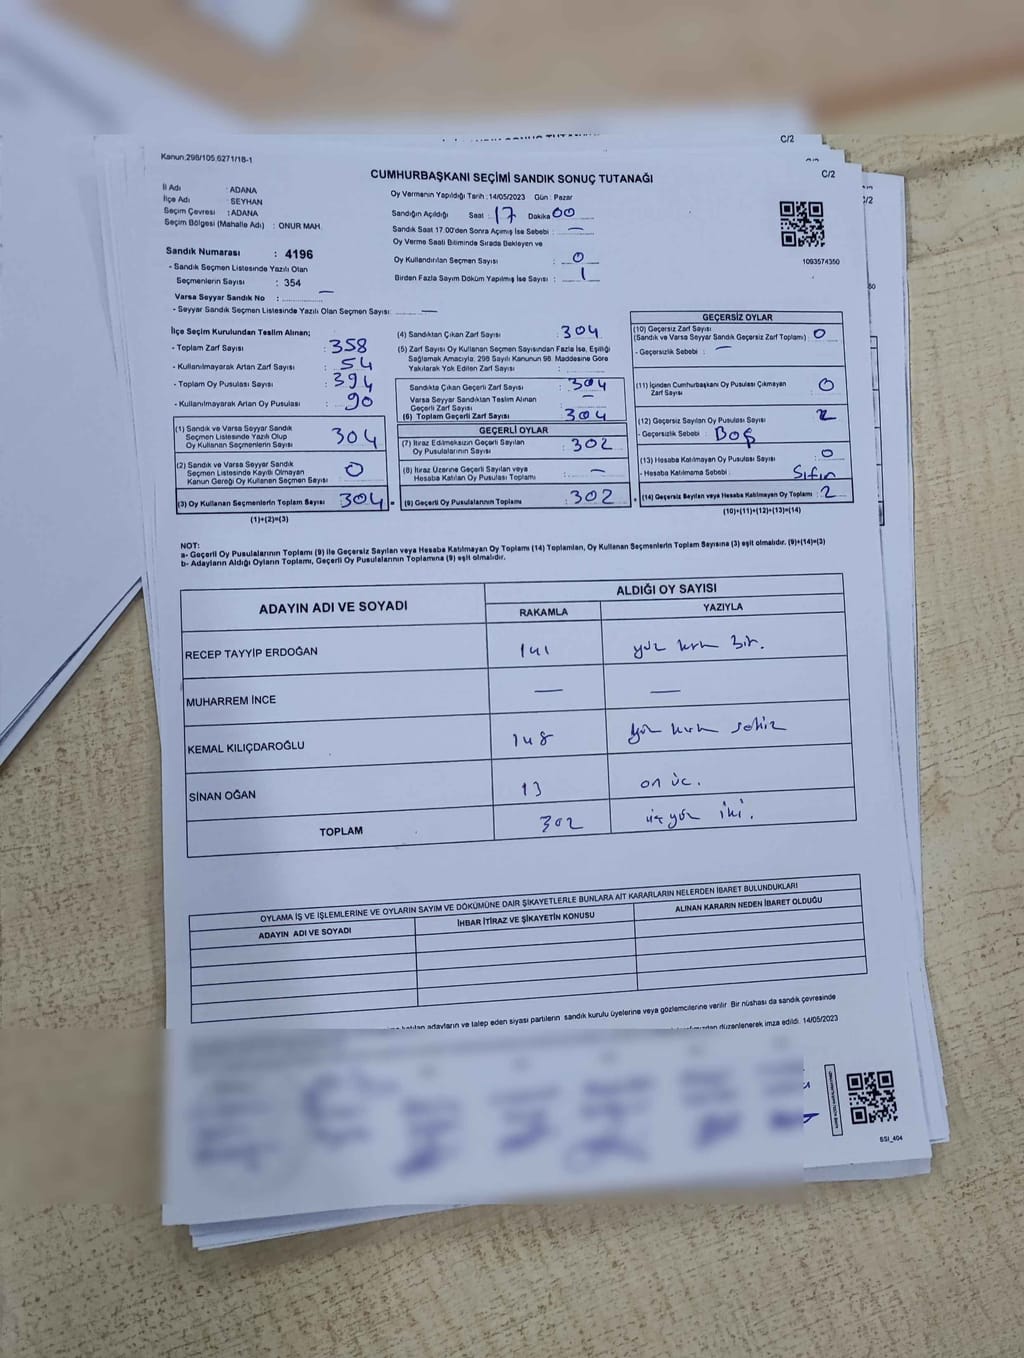 C/2
Kanun.298/105.6271/18-1
C/2
CUMHURBAŞKANI SEÇİMİ SANDIK SONUÇ TUTANAĞI
İl Adı : ADANA
İlçe Adı : SEYHAN
Seçim Çevresi : ADANA
Seçim Bölgesi (Mahalle Adı) : ONUR MAH.
Oy Vermenin Yapıldığı Tarih : 14/05/2023 Gün : Pazar
Sandığın Açıldığı Saat : 17 Dakika 00
Sandık Saat 17.00'den Sonra Açılmış İse Sebebi : —
Oy Verme Saati Bitiminde Sırada Bekleyen ve
Oy Kullandırılan Seçmen Sayısı : 0
Birden Fazla Sayım Döküm Yapılmış İse Sayısı : 1
1093574350
Sandık Numarası : 4196
- Sandık Seçmen Listesinde Yazılı Olan
Seçmenlerin Sayısı : 354
Varsa Seyyar Sandık No : —
- Seyyar Sandık Seçmen Listesinde Yazılı Olan Seçmen Sayısı —
İlçe Seçim Kurulundan Teslim Alınan;
- Toplam Zarf Sayısı : 358
- Kullanılmayarak Artan Zarf Sayısı : 54
- Toplam Oy Pusulası Sayısı : 394
- Kullanılmayarak Artan Oy Pusulası : 90
(1) Sandık ve Varsa Seyyar Sandık
Seçmen Listesinde Yazılı Olup
Oy Kullanan Seçmenlerin Sayısı : 304
(2) Sandık ve Varsa Seyyar Sandık
Seçmen Listesinde Kayıtlı Olmayan
Kanun Gereği Oy Kullanan Seçmen Sayısı 0
(3) Oy Kullanan Seçmenlerin Toplam Sayısı 304
(1)+(2)=(3)
(4) Sandıktan Çıkan Zarf Sayısı : 304
(5) Zarf Sayısı Oy Kullanan Seçmen Sayısından Fazla İse, Eşitliği
Sağlamak Amacıyla, 298 Sayılı Kanunun 98. Maddesine Göre
Yakılarak Yok Edilen Zarf Sayısı :
Sandıkta Çıkan Geçerli Zarf Sayısı : 304
Varsa Seyyar Sandıktan Teslim Alınan
Geçerli Zarf Sayısı —
(6) Toplam Geçerli Zarf Sayısı : 304
GEÇERLİ OYLAR
(7) İtiraz Edilmeksizin Geçerli Sayılan
Oy Pusulalarının Sayısı : 302
(8) İtiraz Üzerine Geçerli Sayılan veya
Hesaba Katılan Oy Pusulası Toplamı : —
(9) Geçerli Oy Pusulalarının Toplamı : 302
GEÇERSİZ OYLAR
(10) Geçersiz Zarf Sayısı
(Sandık ve Varsa Seyyar Sandık Geçersiz Zarf Toplamı) : 0
- Geçersizlik Sebebi : —
(11) İçinden Cumhurbaşkanı Oy Pusulası Çıkmayan
Zarf Sayısı : 0
(12) Geçersiz Sayılan Oy Pusulası Sayısı : 2
- Geçersizlik Sebebi : Boş
(13) Hesaba Katılmayan Oy Pusulası Sayısı : 0
- Hesaba Katılmama Sebebi : Sıfır
(14) Geçersiz Sayılan veya Hesaba Katılmayan Oy Toplamı : 2
(10)+(11)+(12)+(13)=(14)
NOT:
a- Geçerli Oy Pusulalarının Toplamı (9) ile Geçersiz Sayılan veya Hesaba Katılmayan Oy Toplamı (14) Toplamları, Oy Kullanan Seçmenlerin Toplam Sayısına (3) eşit olmalıdır. (9)+(14)=(3)
b- Adayların Aldığı Oyların Toplamı, Geçerli Oy Pusulalarının Toplamına (9) eşit olmalıdır.
ADAYIN ADI VE SOYADI
ALDIĞI OY SAYISI
RAKAMLA YAZIYLA
RECEP TAYYİP ERDOĞAN 141 yüz kırk bir.
MUHARREM İNCE — —
KEMAL KILIÇDAROĞLU 148 yüz kırk sekiz
SİNAN OĞAN 13 on üç.
TOPLAM 302 üç yüz iki.
OYLAMA İŞ VE İŞLEMLERİNE VE OYLARIN SAYIM VE DÖKÜMÜNE DAİR ŞİKAYETLERLE BUNLARA AİT KARARLARIN NELERDEN İBARET BULUNDUKLARI
ADAYIN ADI VE SOYADI İHBAR İTİRAZ VE ŞİKAYETİN KONUSU ALINAN KARARIN NEDEN İBARET OLDUĞU
adayların ve talep eden siyasi partilerin sandık kurulu üyelerine veya gözlemcilerine verilir. Bir nüshası da sandık çevresinde
düzenlenerek imza edildi. 14/05/2023
SSI_404